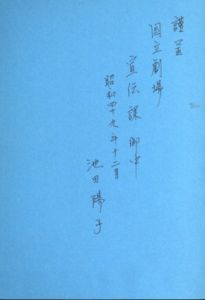 謹呈
国立劇場
宣伝課 御中
昭和四十九年十二月
池田陽子